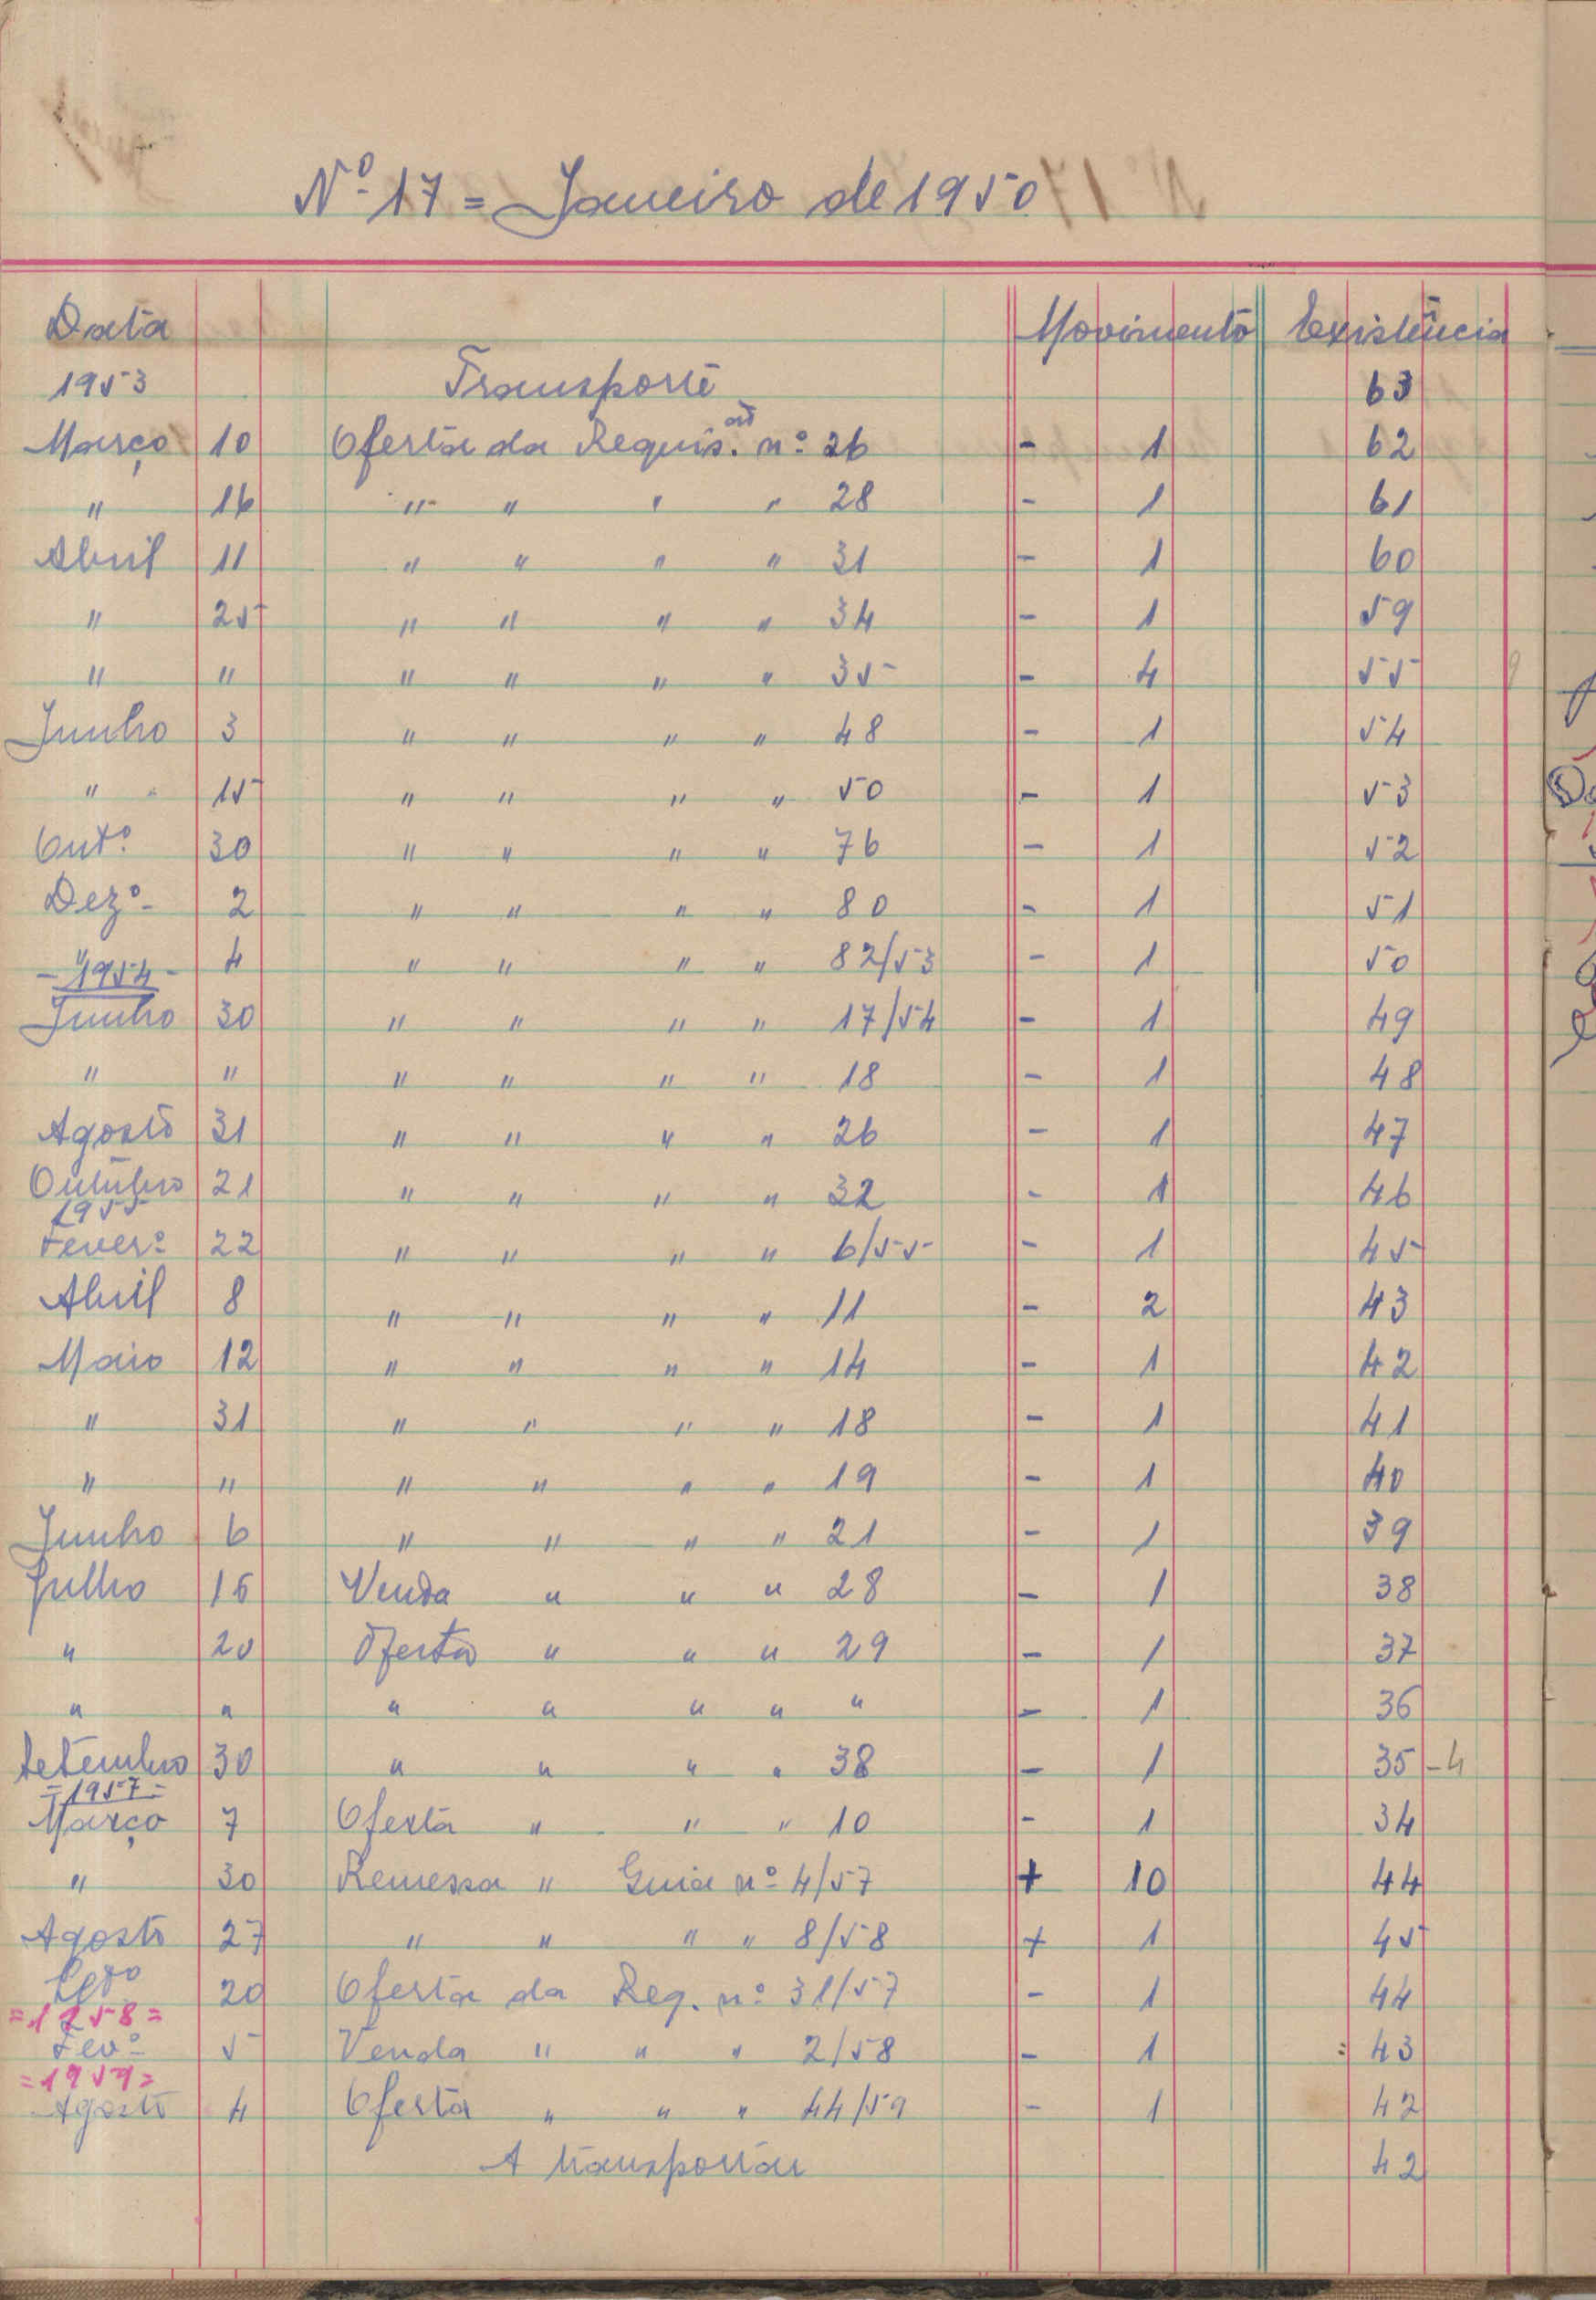 Nº 17 = Janeiro de 1950
Data Movimento Existência
1953 Transporte 63
Março 10 Oferta da Requis.ão nº 26 - 1 62
" 16 " " " " 28 - 1 61
Abril 11 " " " " 31 - 1 60
" 25 " " " " 34 - 1 59
" " " " " " 35 - 4 55
Junho 3 " " " " 48 - 1 54
" 15 " " " " 50 - 1 53
Outº 30 " " " " 76 - 1 52
Dezº 2 " " " " 80 - 1 51
" 4 " " " " 82/53 - 1 50
- 1954 -
Junho 30 " " " " 17/54 - 1 49
" " " " " " 18 - 1 48
Agosto 31 " " " " 26 - 1 47
Outubro 21 " " " " 32 - 1 46
1955
Fever.º 22 " " " " 6/55 - 1 45
Abril 8 " " " " 11 - 2 43
Maio 12 " " " " 14 - 1 42
" 31 " " " " 18 - 1 41
" " " " " " 19 - 1 40
Junho 6 " " " " 21 - 1 39
Julho 16 Venda " " " 28 - 1 38
" 20 Oferta " " " 29 - 1 37
" " " " " " " - 1 36
Setembro 30 " " " " 38 - 1 35 - 4
= 1957 =
Março 7 Oferta " " " 10 - 1 34
" 30 Remessa " Guia nº 4/57 + 10 44
Agosto 27 " " " " 8/58 + 1 45
Setº 20 Oferta da Req. nº 31/57 - 1 44
= 1958 =
Fevº 5 Venda " " " 2/58 - 1 43
= 1959 =
Agosto 4 Oferta " " " 44/59 - 1 42
A transportar 42